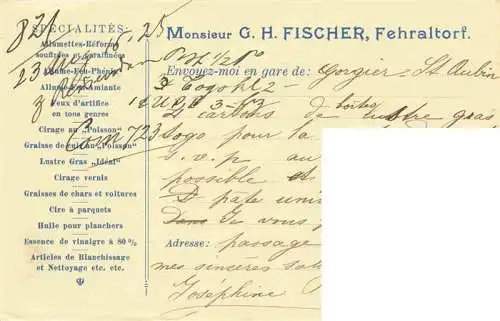 SPÉCIALITÉS:
Allumettes-Réforme
soufrées et paraffinées
Allume-Feu-Phénix
Allume-Feu-Amiante
Feux d'artifice
en tous genres
Cirage au "Poisson"
Graisse de cuir au "Poisson"
Lustre Gras "Idéal"
Cirage vernis
Graisses de chars et voitures
Cire à parquets
Huile pour planchers
Essence de vinaigre à 80 %
Articles de Blanchissage
et Nettoyage etc. etc.
821
15,25
723
Monsieur G. H. FISCHER, Fehraltorf.
Envoyez-moi en gare de: Gorgier-St Aubin
2 cartons de boîtes lustre gras
Gogo pour la
s.v.p au
possible et
pâte uni
Je vous
Adresse: passage
mes sincères salu
Joséphine